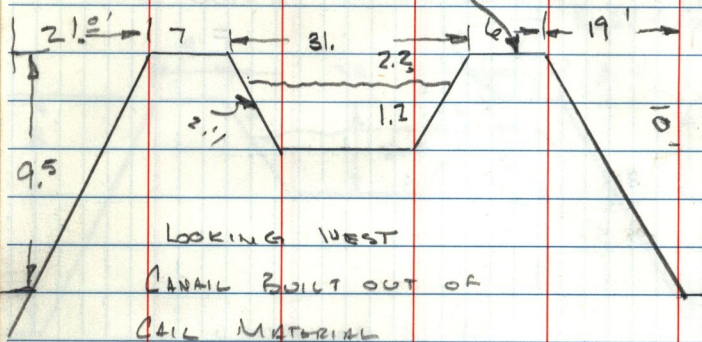 21.0' 7 31. 6 19'
2.2
1.2
2:1
9.5
LOOKING WEST
CANAIL BUILT OUT OF
CAIL MATERIAL